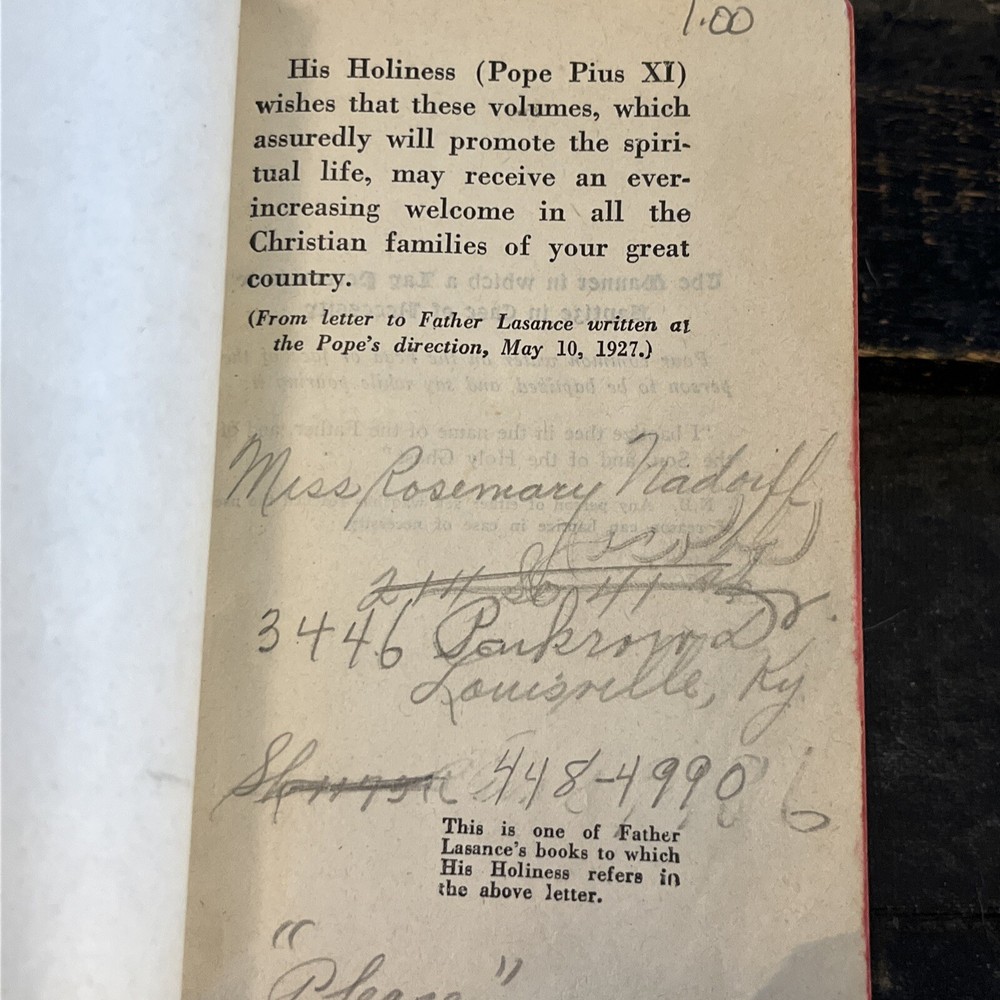 1.00
His Holiness (Pope Pius XI)
wishes that these volumes, which
assuredly will promote the spiri-
tual life, may receive an ever-
increasing welcome in all the
Christian families of your great
country.
(From letter to Father Lasance written at
the Pope's direction, May 10, 1927.)
Miss Rosemary Nadorff
211 So 41 st
3446 Parkrow Dr.
Louisville, Ky
448-4990
This is one of Father
Lasance's books to which
His Holiness refers in
the above letter.
"Please"